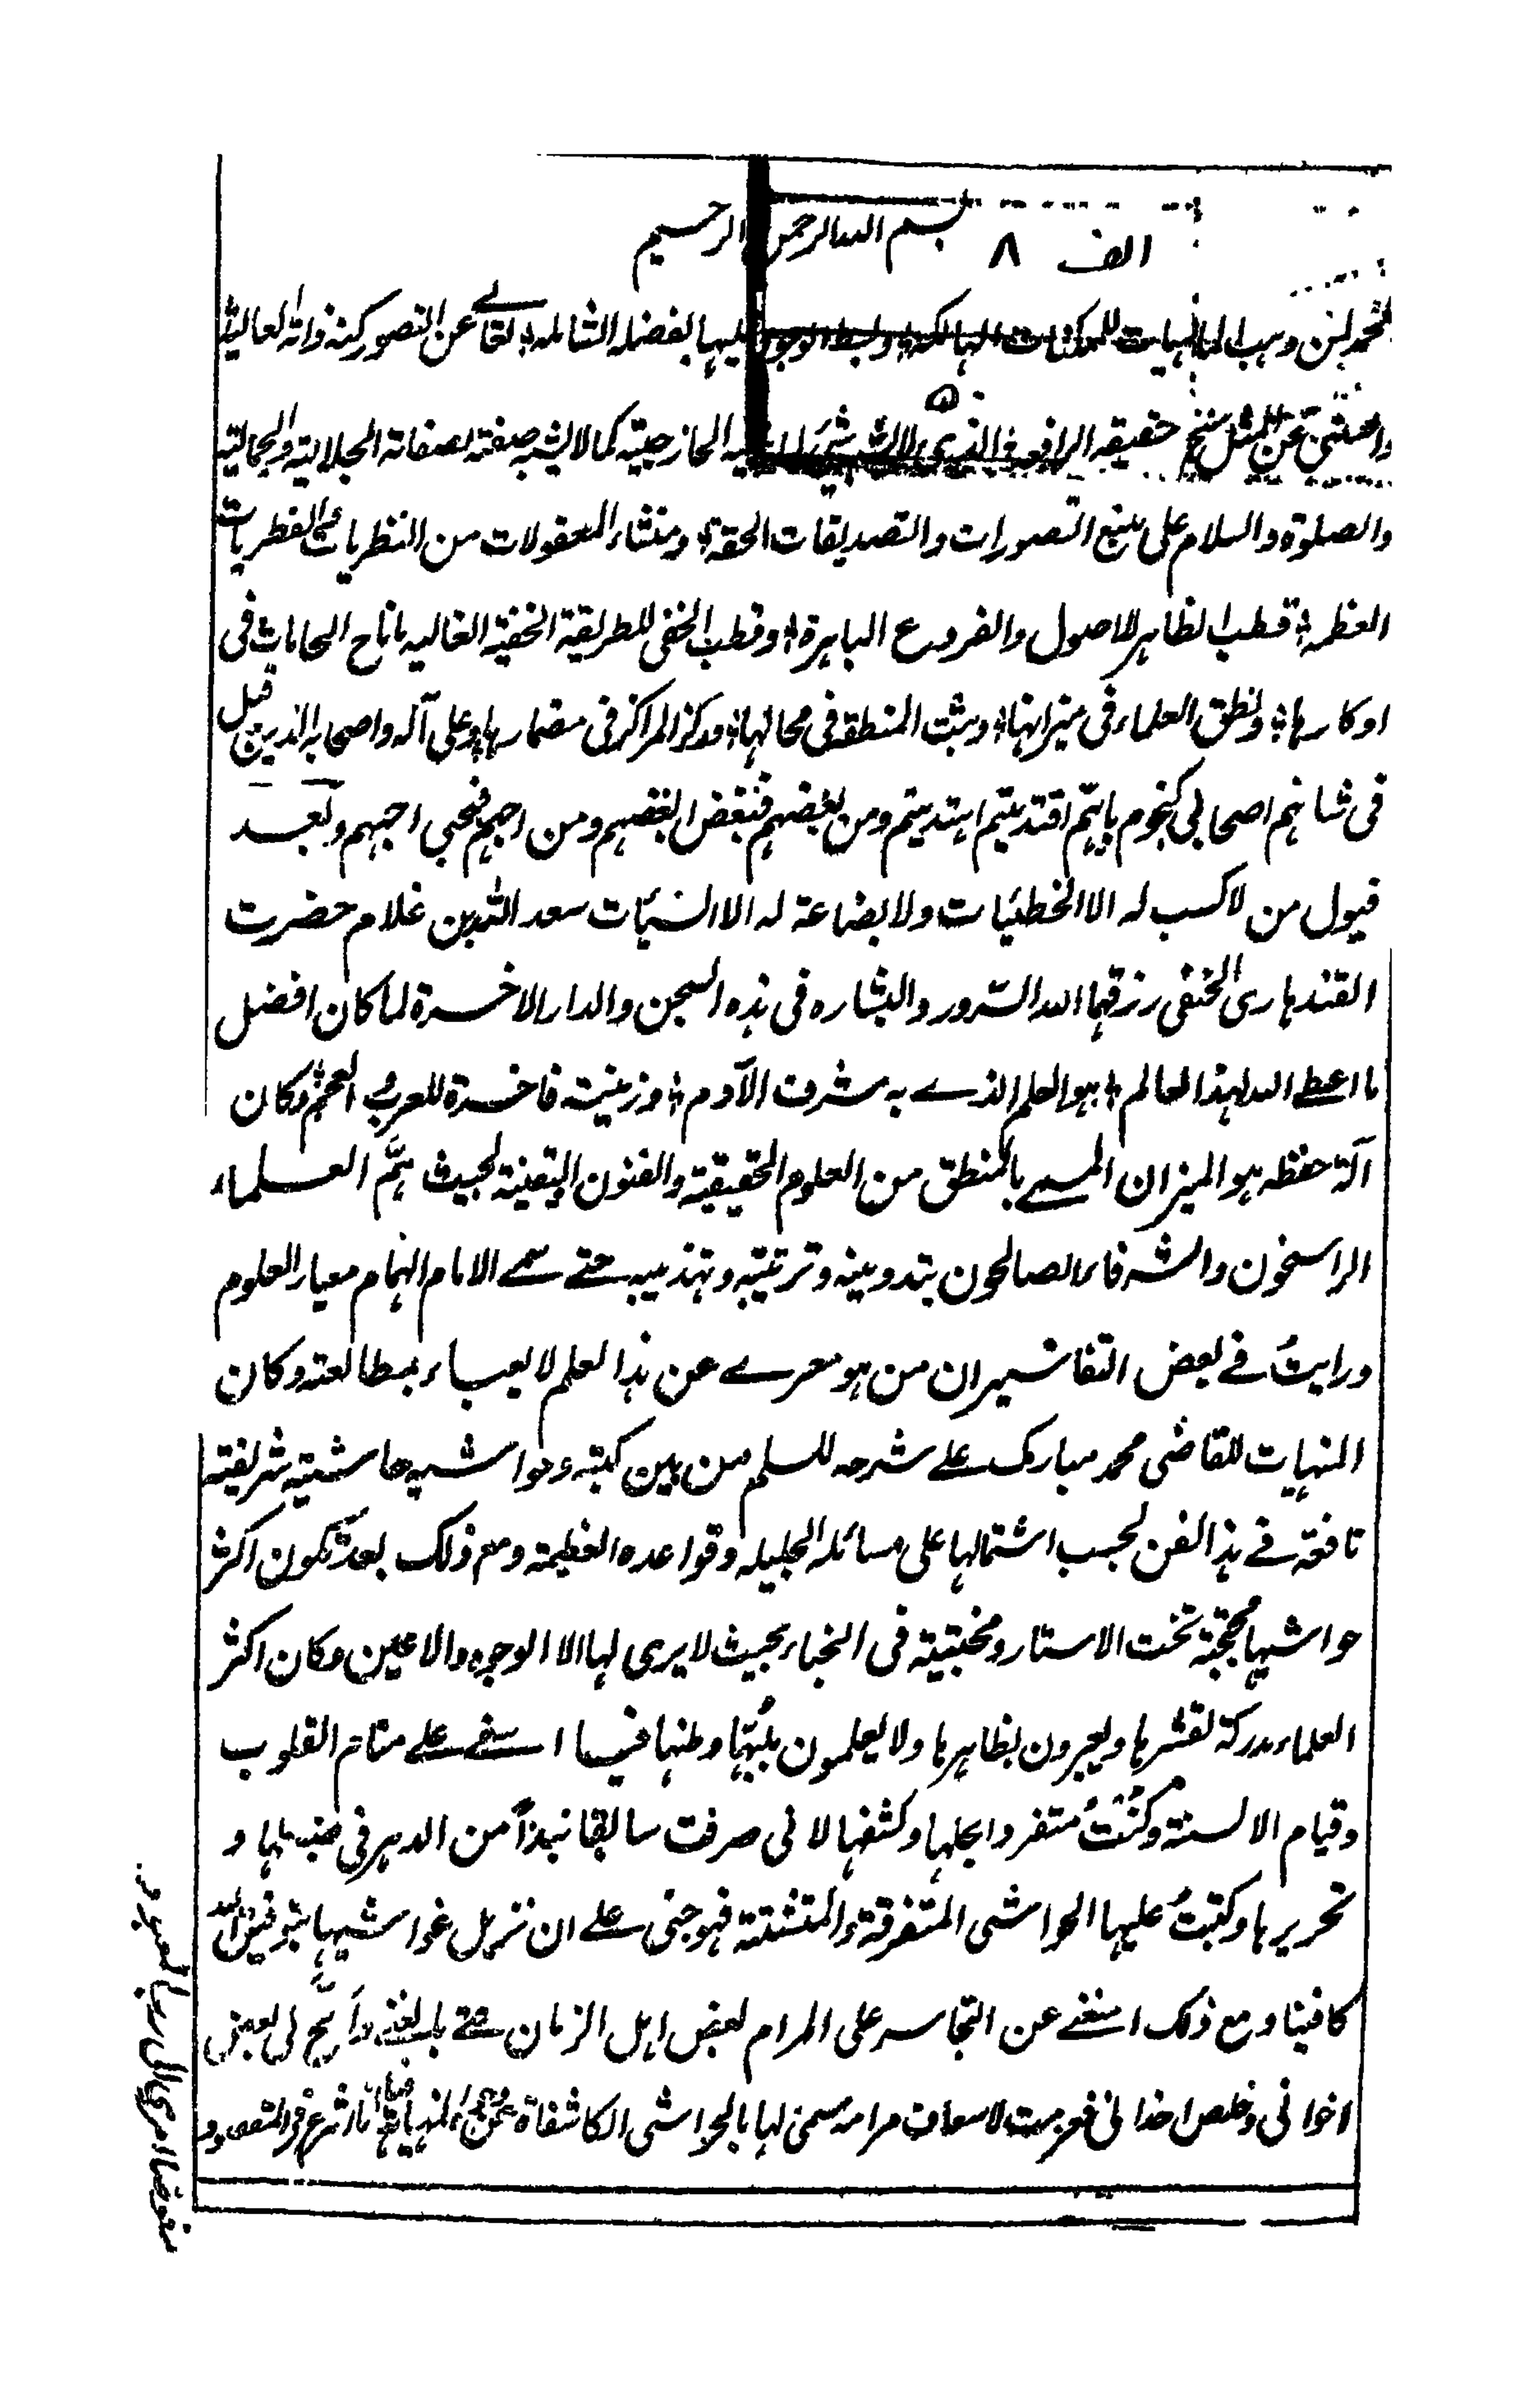 الف ٨ بسم الله الرحمن الرحيم
الحمد لمن وهب الماهيات للممكنات الهالكة وبسط الوجود عليها بفضله الشاملة تعالى عن التصور كنه ذاته العالية
عن المثل حقيقته الرافعة الذى لا الخارجية كما لا يشبه صفته بصفاته الجلالية والجمالية
والصلوة والسلام على منبع التصورات والتصديقات الحقة ومنشاء المعقولات من النظريات والفطريات
قطب الظاهر للاصول والفروع الباهرة وقطب الخفى للطريقة الخفية الغالية ما ناح الحمامات فى
اوكارها ونطق العلماء فى ميزانها ويثبت المنطقة فى محالها ومركز المراكز فى مضمارها وعلى آله واصحابه الذين قيل
فى شانهم اصحابى كنجوم بايهم اقتديتم اهتديتم ومن بغضهم فببغضى ابغضهم ومن احبهم فبحبى احبهم وبعد
فيول من لا كسب له الا الخطئيات ولا بضاعة له الا السيئات سعد الله بن غلام حضرت
القندهارى الحنفى رزقهما الله السرور والبشاره فى هذه السجن والدار الاخرة لما كان افضل
ما اعطى الله لهذا العالم هو العلم الذے به شرف الآدم وزينية فاخرة للعرب والعجم وكان
آلة حفظه هو الميزان المسمے بالمنطق من العلوم الحقيقية والفنون اليقينية بحيث همَّ العلماء
الراسخون والشرفاء الصالحون بتدوينه وترتيبه وتهذيبه حتے سمے الامام الهمام معيار العلوم
ورايتُ فے بعض التفاسير ان من هو معرے عن هذا العلم لا يعباء بمطالعته وكان
المنهيات للقاضى محمد مبارك علے شرحه للسلم من بين كتبه وحواشيه حاشية شريفة
نافعة فے هذا الفن بحسب اشتمالها على مسائله الجليله وقواعده العظيمة ومع ذلك بعد تكون اكثر
حواشيها محجبة تحت الاستار ومختبية فى الخباء بحيث لا يرى لها الا الوجوه والاعين وكان اكثر
العلماء مدركة لقشرها ويعبرون بظاهرها ولا يعلمون بلبّها وبطنها فيا اسفے علے منام القلوب
وقيام الالسنة وكنتُ متفردا بحلها وكشفها لانى صرفت سابقا نبذاً من الدهر فى ضبطها و
تحريرها وكتبتُ عليها الحواشى المتفرقة والمتشتتة فهوجنى علے ان نزيل غواشيها بتوفيق الله
كافينا ومع ذلك استغنے عن التجاسر على المرام لبعض اهل الزمان حتے بالغنے والحّ لى بعض
اخوانى وخلص اخدانى فعزمت لاسعاف مرامه سمى لها بالحواشى الكاشفاة عن المنهيات فها انا اشرع فى المقصود
مفوضا امرى الى رب المعبود